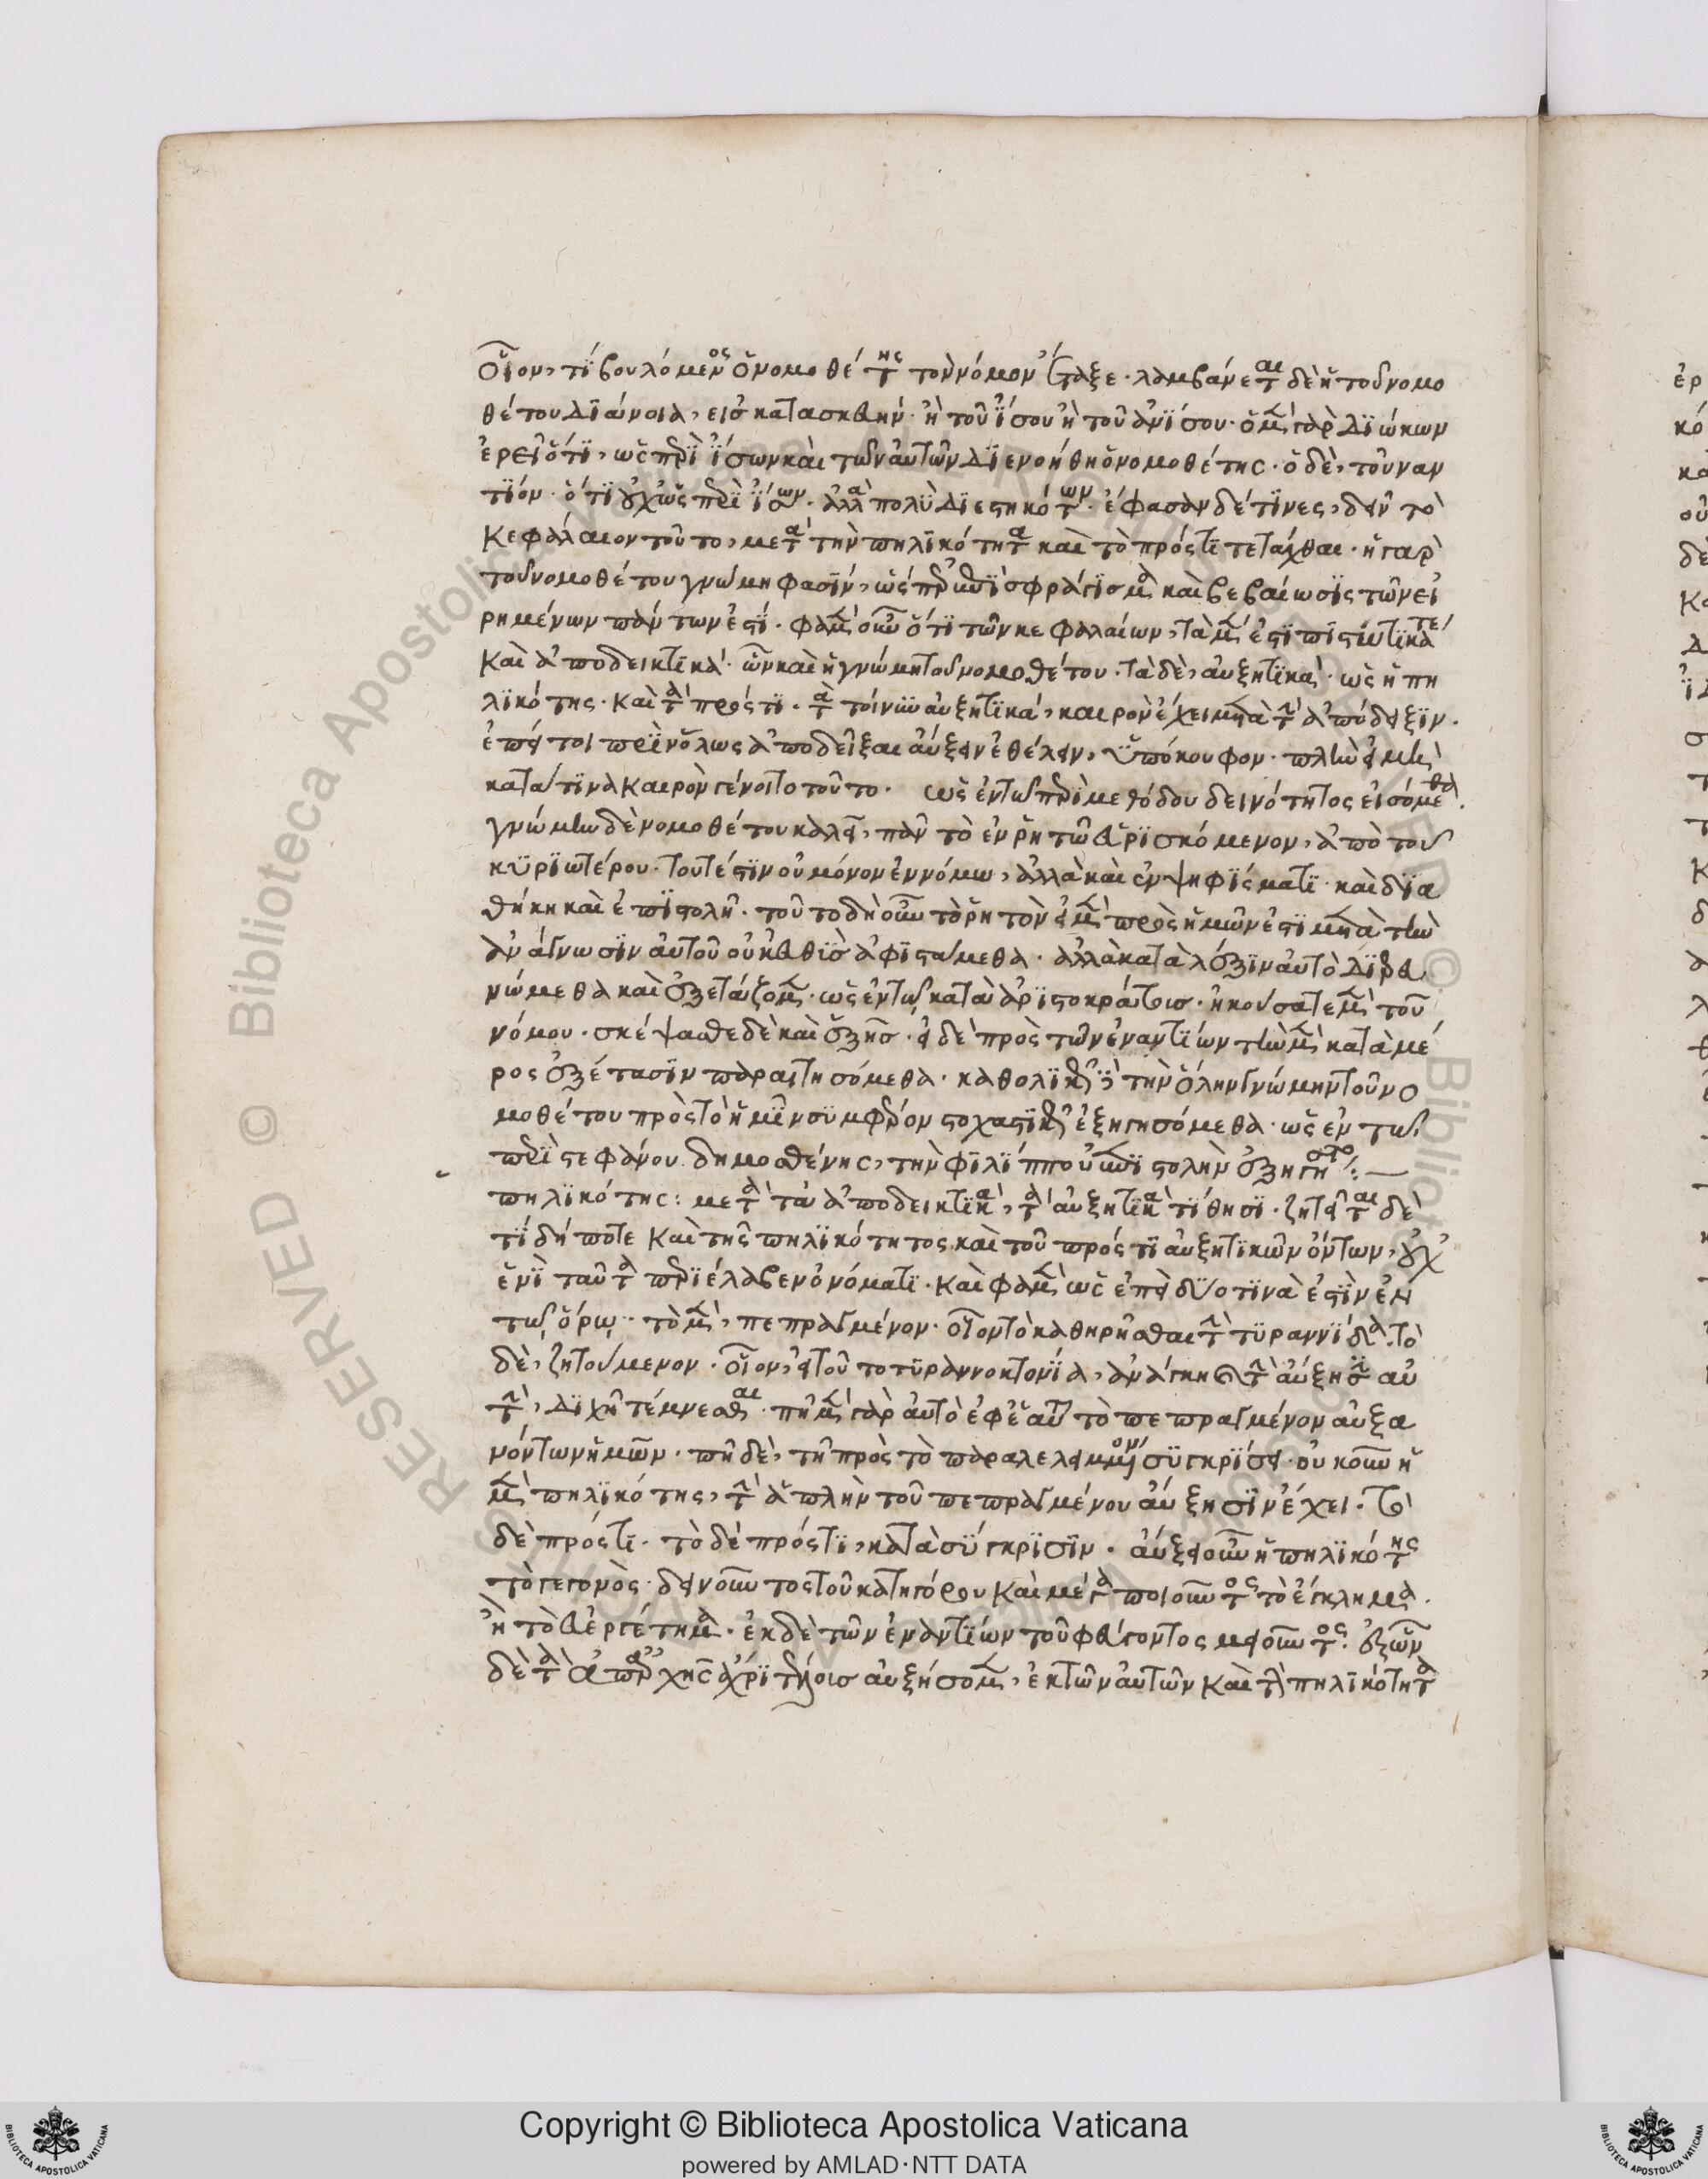 οἷον, τί βουλόμενος ὁ νομοθέτης τὸν νόμον ἔταξε. λαμβάνεται δὲ ἡ τοῦ νομο
θέτου διάνοια, εἰς κατασκευὴν ἢ τοῦ ἴσου ἢ τοῦ ἀνίσου. ὁ μὲν γὰρ διώκων
ἐρεῖ ὅτι, ὡς περὶ ἴσων καὶ τῶν αὐτῶν διενοήθη ὁ νομοθέτης. ὁ δὲ, τοὐναν
τίον. ὅτι οὐχ ὡς περὶ ἴσων. ἀλλὰ πολὺ διεστηκότων. ἔφασαν δέ τινες, δεῖν τὸ
κεφάλαιον τοῦτο, μετὰ τὴν πηλικότητα καὶ τὸ πρός τι τετάχθαι. ἡ γὰρ
τοῦ νομοθέτου γνώμη φασὶν, ὥσπερ ἐπισφράγισμα καὶ βεβαίωσις τῶν εἰ
ρημένων πάντων ἐστί. φαμὲν οὖν ὅτι τῶν κεφαλαίων, τὰ μέν ἐστι πιστωτικά τε
καὶ ἀποδεικτικά. ὧν καὶ ἡ γνώμη τοῦ νομοθέτου. τὰ δὲ, αὐξητικά. ὡς ἡ πη
λικότης. καὶ τὰ πρός τι. τὰ τοίνυν αὐξητικά, καιρὸν ἔχει μετὰ τὴν ἀπόδειξιν.
ἐπεί τοι πρὶν ὅλως ἀποδεῖξαι αὔξειν ἐθέλειν, ὑπόκουφον. πλὴν εἰ μὴ
κατά τινα καιρὸν γένοιτο τοῦτο. ὡς ἐν τῷ περὶ μεθόδου δεινότητος εἰσόμεθα.
γνώμην δὲ νομοθέτου καλεῖ, πᾶν τὸ ἐν ῥητῷ εὑρισκόμενον, ἀπὸ τοῦ
κυριωτέρου. τουτέστιν οὐ μόνον ἐν νόμω, ἀλλὰ καὶ ἐν ψηφίσματι καὶ δια
θήκη καὶ ἐπιστολῆ. τοῦτο δὴ οὖν τὸ ῥητὸν εἰ μὲν πρὸς ἡμῶν ἐστι μετὰ τὴν
ἀνάγνωσιν αὐτοῦ οὐκ εὐθὺς ἀφιστάμεθα. ἀλλὰ κατὰ λέξιν αὐτὸ διερευ
νώμεθα καὶ ἐξετάζομεν. ὡς ἐν τῷ κατὰ ἀριστοκράτους. ἠκούσατε μὲν τοῦ
νόμου. σκέψασθε δὲ καὶ ἑξῆς. εἰ δὲ πρὸς τῶν ἐναντίων τὴν μὲν κατὰ μέ
ρος ἐξέτασιν παραιτησόμεθα. καθολικῶς δὲ τὴν ὅλην γνώμην τοῦ νο
μοθέτου πρὸς τὸ ἡμῖν συμφέρον στοχαστικῶς ἐξηγησόμεθα. ὡς ἐν τῷ
περὶ στεφάνου δημοσθένης, τὴν φιλίππου ἐπιστολὴν ἐξηγήσατο:—
πηλικότης: μετὰ τὰ ἀποδεικτικὰ, τὰ αὐξητικὰ τίθησι. ζητεῖται δὲ
τί δήποτε καὶ τῆς πηλικότητος καὶ τοῦ πρός τι αὐξητικῶν ὄντων, οὐχ
ἑνὶ ταῦτα περιέλαβεν ὀνόματι. καὶ φαμὲν ὡς ἐπεὶ δύο τινά ἐστιν ἐν
τῷ ὅρῳ. τὸ μὲν, πεπραγμένον. οἷον τὸ καθηρῆσθαι τὴν τυραννίδα. τὸ
δὲ, ζητούμενον. οἷον, εἰ τοῦτο τυραννοκτονία, ἀνάγκη καὶ τὴν αὔξησιν αὐ
τὴν, διχῆ τέμνεσθαι. πῆ μὲν γὰρ αὐτὸ ἐφ' ἑαυτὸ πεπραγμένον αὐξα
νόντων ἡμῶν. πῆ δὲ, τῆ πρὸς τὸ παραλελειμμένον συγκρίσει. οὐκοῦν ἡ
μὲν πηλικότης, τὴν ἁπλὴν τοῦ πεπραγμένου αὔξησιν ἔχει. τὸ
δὲ πρός τι. τὸ δὲ πρός τι, κατὰ σύγκρισιν. αὔξει οὖν ἡ πηλικότης
τὸ γεγονός. δεινοῦντος τοῦ κατηγόρου καὶ μέγα ποιοῦντος τὸ ἔγκλημα.
ἢ τὸ εὐεργέτημα. ἐκ δὲ τῶν ἐναντίων τοῦ φεύγοντος μειοῦντος. ἐξ ὧν
δὲ τὰ ἀπ' ἀρχῆς ἄχρι τέλους αὐξήσομεν, ἐκ τῶν αὐτῶν καὶ τὴν πηλικότητα
Copyright © Biblioteca Apostolica Vaticana
powered by AMLAD·NTT DATA